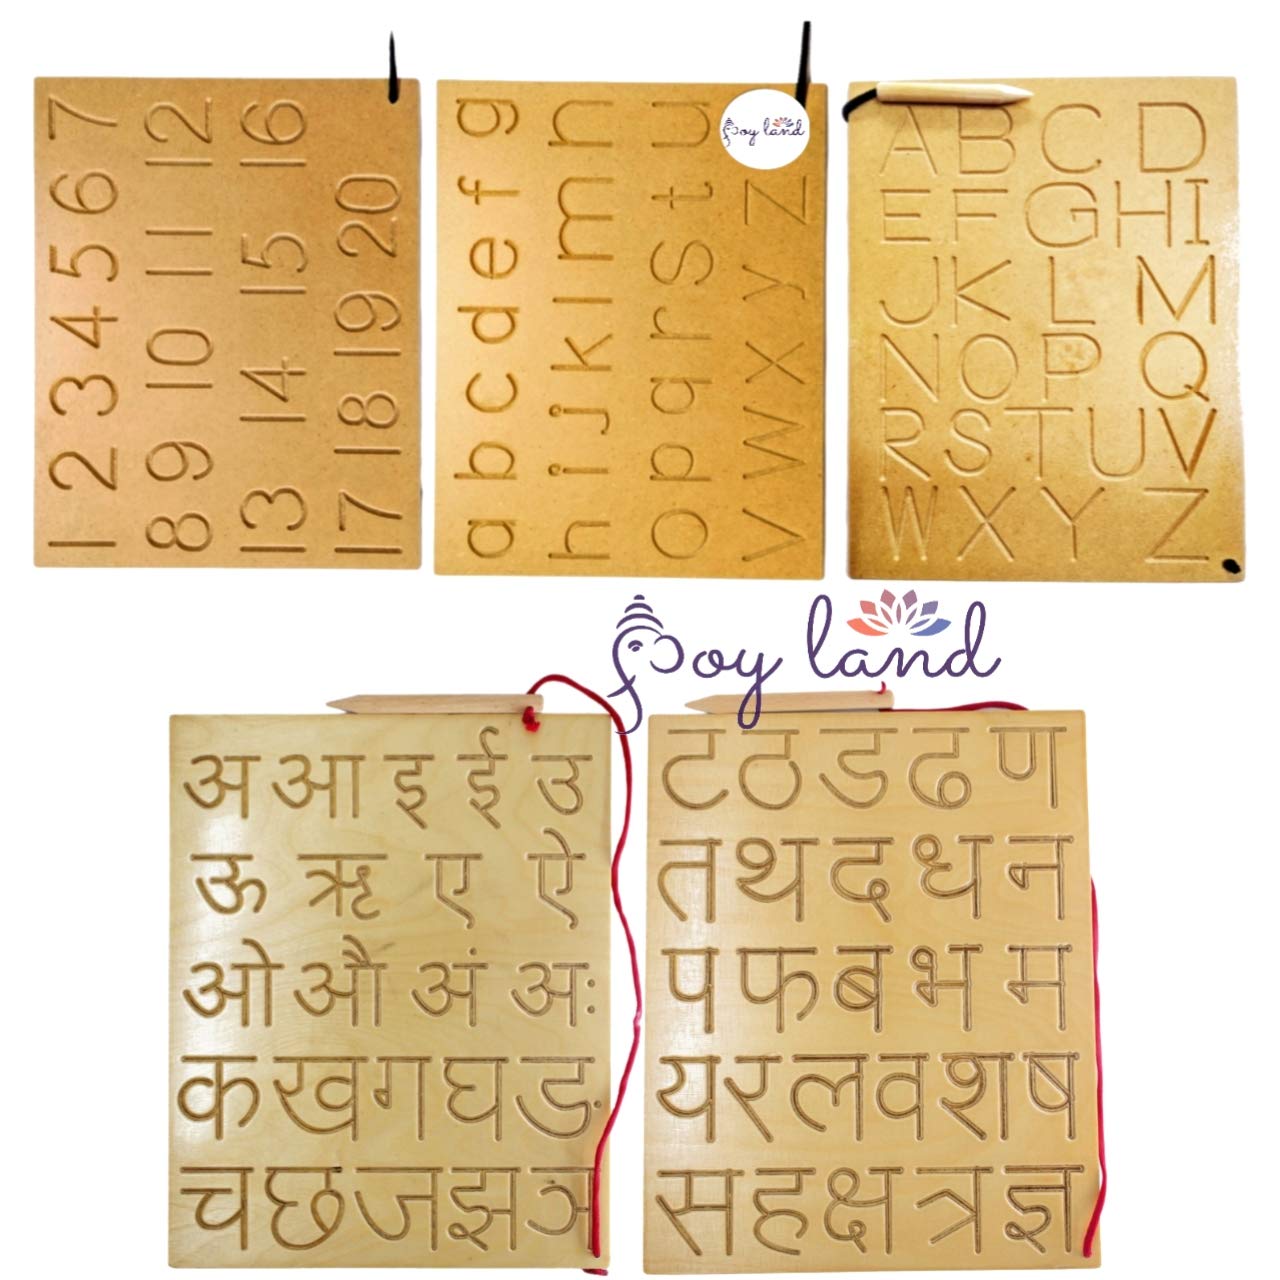 1 2 3 4 5 6 7
8 9 10 11 12
13 14 15 16
17 18 19 20
a b c d e f g
h i j k l m n
o p q r s t u
v w x y z
Joy land
A B C D
E F G H I
J K L M
N O P Q
R S T U V
W X Y Z
Joy land
अ आ इ ई उ
ऊ ऋ ए ऐ
ओ औ अं अः
क ख ग घ ङ
च छ ज झ ञ
ट ठ ड ढ ण
त थ द ध न
प फ ब भ म
य र ल व श ष
स ह क्ष त्र ज्ञ